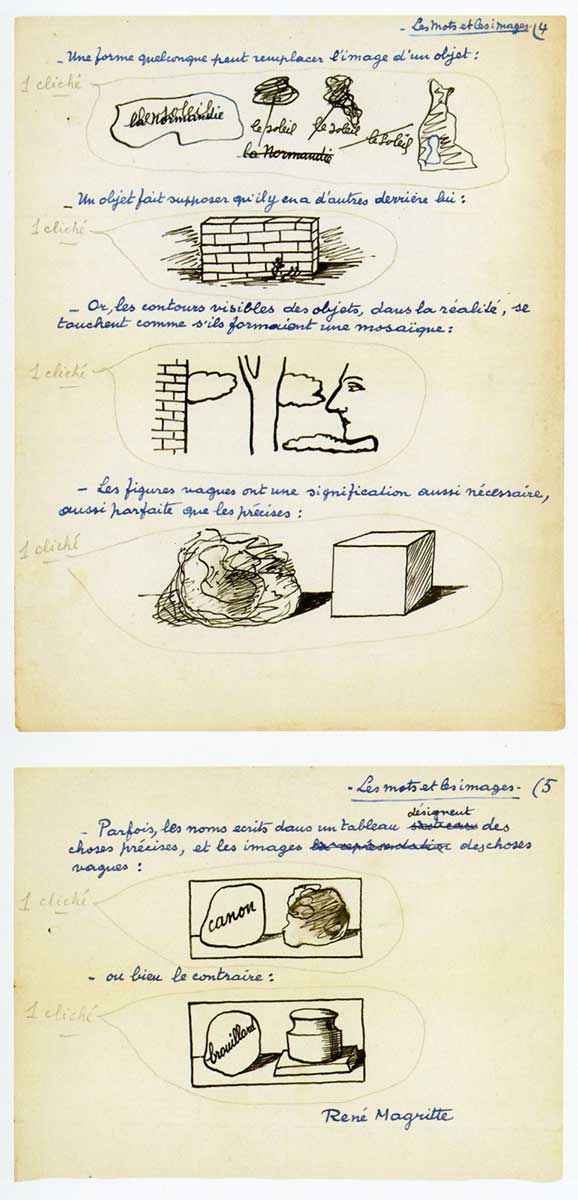 - Les mots et les images - (4
- Une forme quelconque peut remplacer l'image d'un objet :
1 cliché
la Normandie
le soleil
le soleil
le soleil
la Normandie
- Un objet fait supposer qu'il y en a d'autres derrière lui :
1 cliché
- Or, les contours visibles des objets, dans la réalité, se
touchent comme s'ils formaient une mosaïque :
1 cliché
- Les figures vagues ont une signification aussi nécessaire,
aussi parfaite que les précises :
1 cliché
- Les mots et les images - (5
désignent
- Parfois, les noms ecrits dans un tableau des
choses précises, et les images la représentation des choses
vagues :
1 cliché
canon
- ou bien le contraire :
1 cliché
brouillard
René Magritte